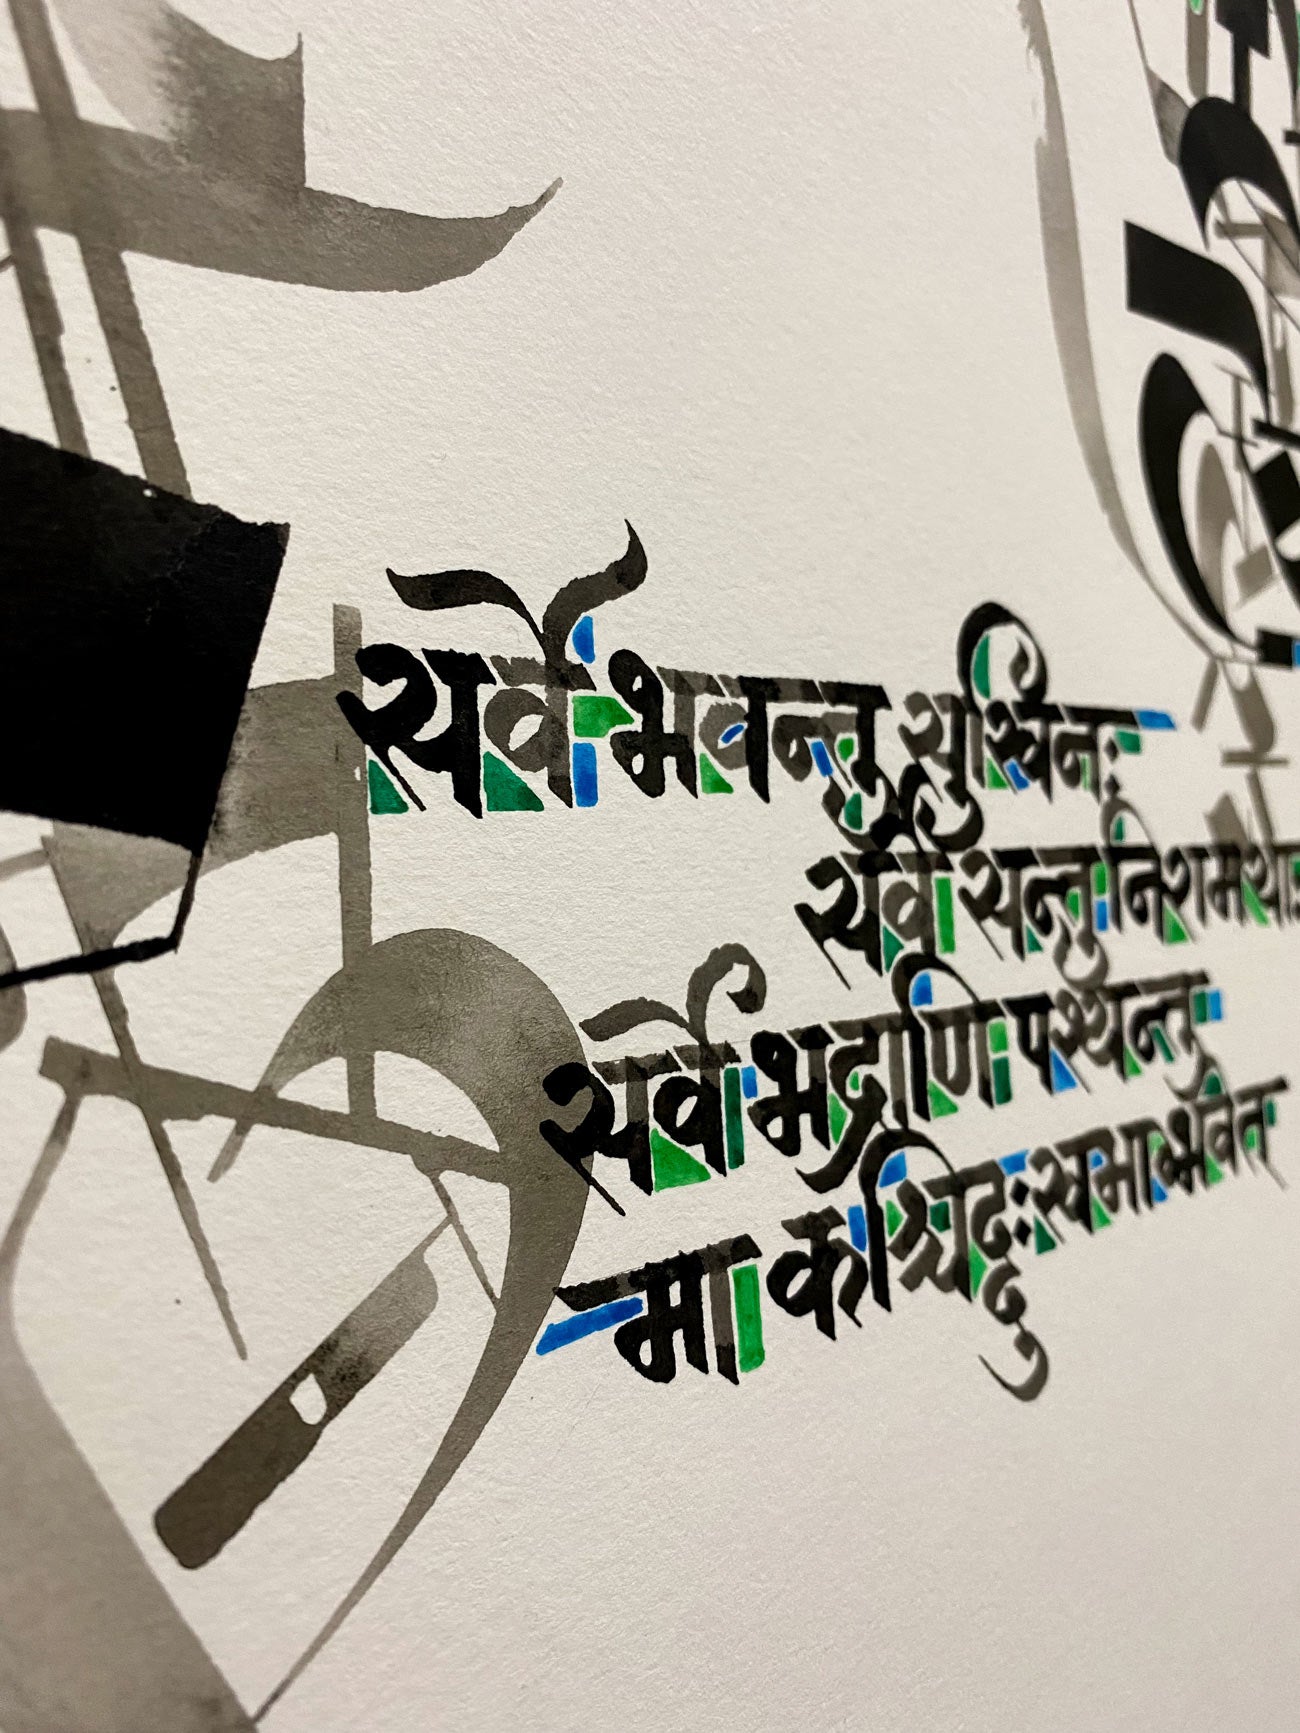 सर्वे भवन्तु सुखिनः
सर्वे सन्तु निरामया
सर्वे भद्राणि पश्यन्तु
मा कश्चिदुःखभाग्भवेत